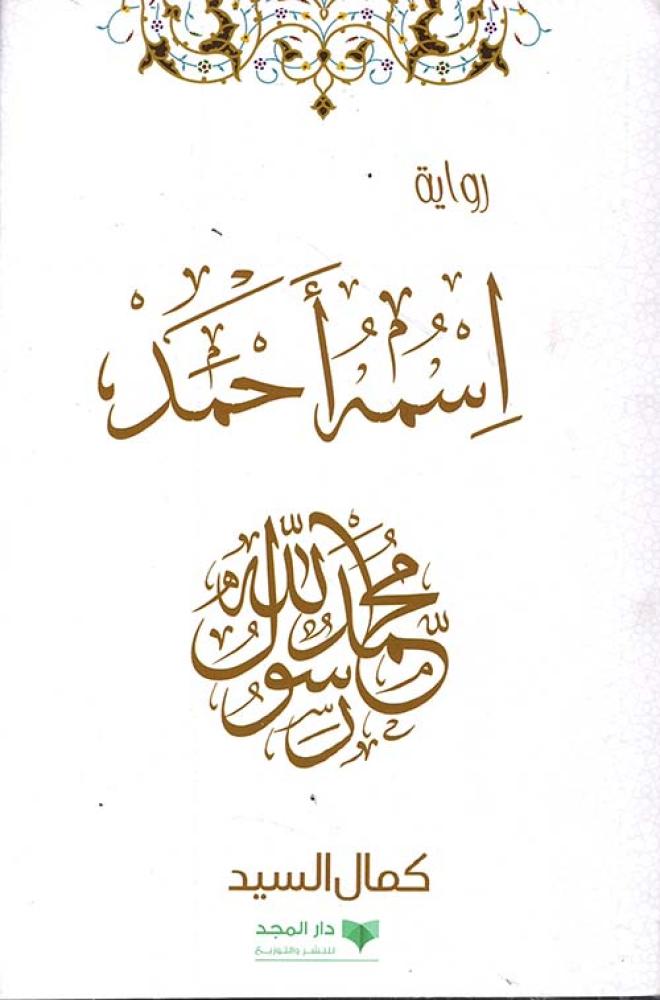 رواية
اِسْمُهُ أَحْمَدْ
محمد رسول الله
كمال السيد
دار المجد
للنشر والتوزيع